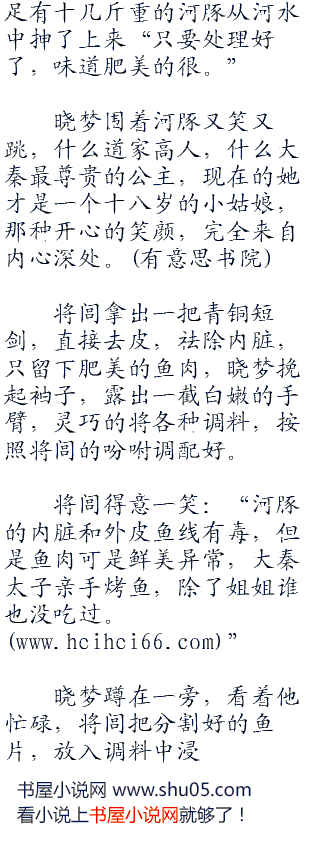 足有十几斤重的河豚从河水
中抻了上来“只要处理好
了，味道肥美的很。”
晓梦围着河豚又笑又
跳，什么道家高人，什么大
秦最尊贵的公主，现在的她
才是一个十八岁的小姑娘，
那种开心的笑颜，完全来自
内心深处。(有意思书院)
将闾拿出一把青铜短
剑，直接去皮，祛除内脏，
只留下肥美的鱼肉，晓梦挽
起袖子，露出一截白嫩的手
臂，灵巧的将各种调料，按
照将闾的吩咐调配好。
将闾得意一笑：“河豚
的内脏和外皮鱼线有毒，但
是鱼肉可是鲜美异常，大秦
太子亲手烤鱼，除了姐姐谁
也没吃过。
(www.hcihci66.com)”
晓梦蹲在一旁，看着他
忙碌，将闾把分割好的鱼
片，放入调料中浸
书屋小说网 www.shu05.com
看小说上书屋小说网就够了！